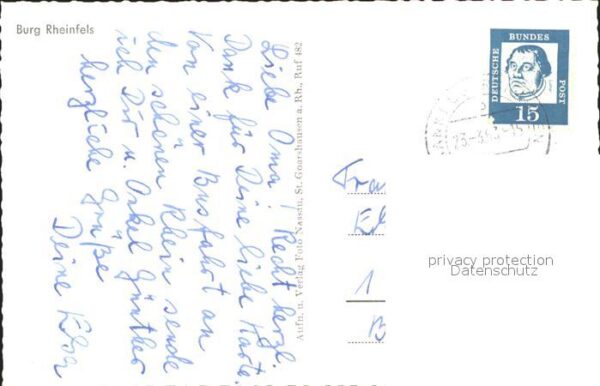 Burg Rheinfels
Liebe Oma! Recht herzl.
Dank für Deine liebe Karte.
Von einer Busfahrt an
den schönen Rhein sende
ich Dir u. Onkel Günther
herzliche Grüße
Deine Elsa
Aufn. u. Verlag Foto Nassau, St. Goarshausen a. Rh., Ruf 482
DEUTSCHE
BUNDES
POST
15
Fra
El
1
B
privacy protection
Datenschutz